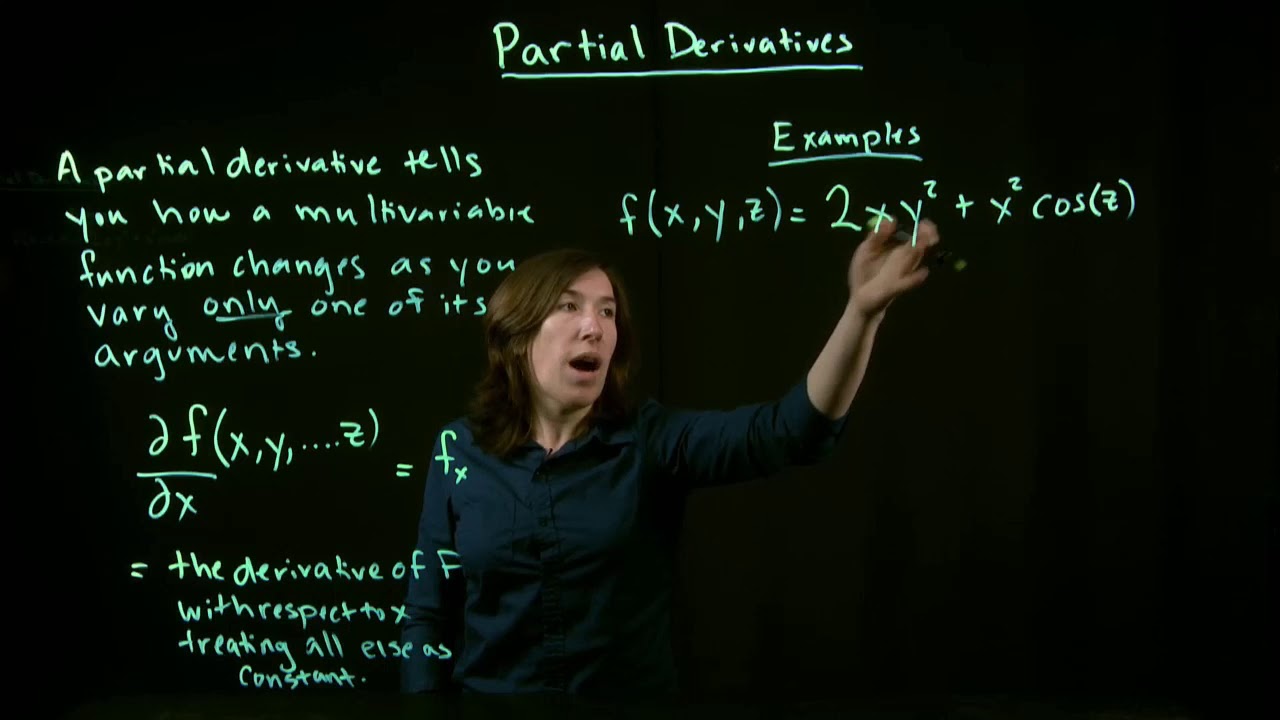 Partial Derivatives
A partial derivative tells
you how a multivariable
function changes as you
vary only one of its
arguments.
∂f(x,y,....z)
∂x
= fx
= the derivative of F
with respect to x
treating all else as
constant.
Examples
f(x,y,z)= 2xy² + x² cos(z)